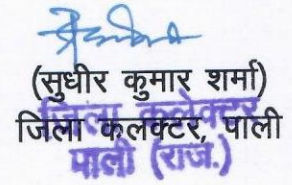 (सुधीर कुमार शर्मा)
जिला कलेक्टर
जिला कलक्टर, पाली
पाली (राज.)